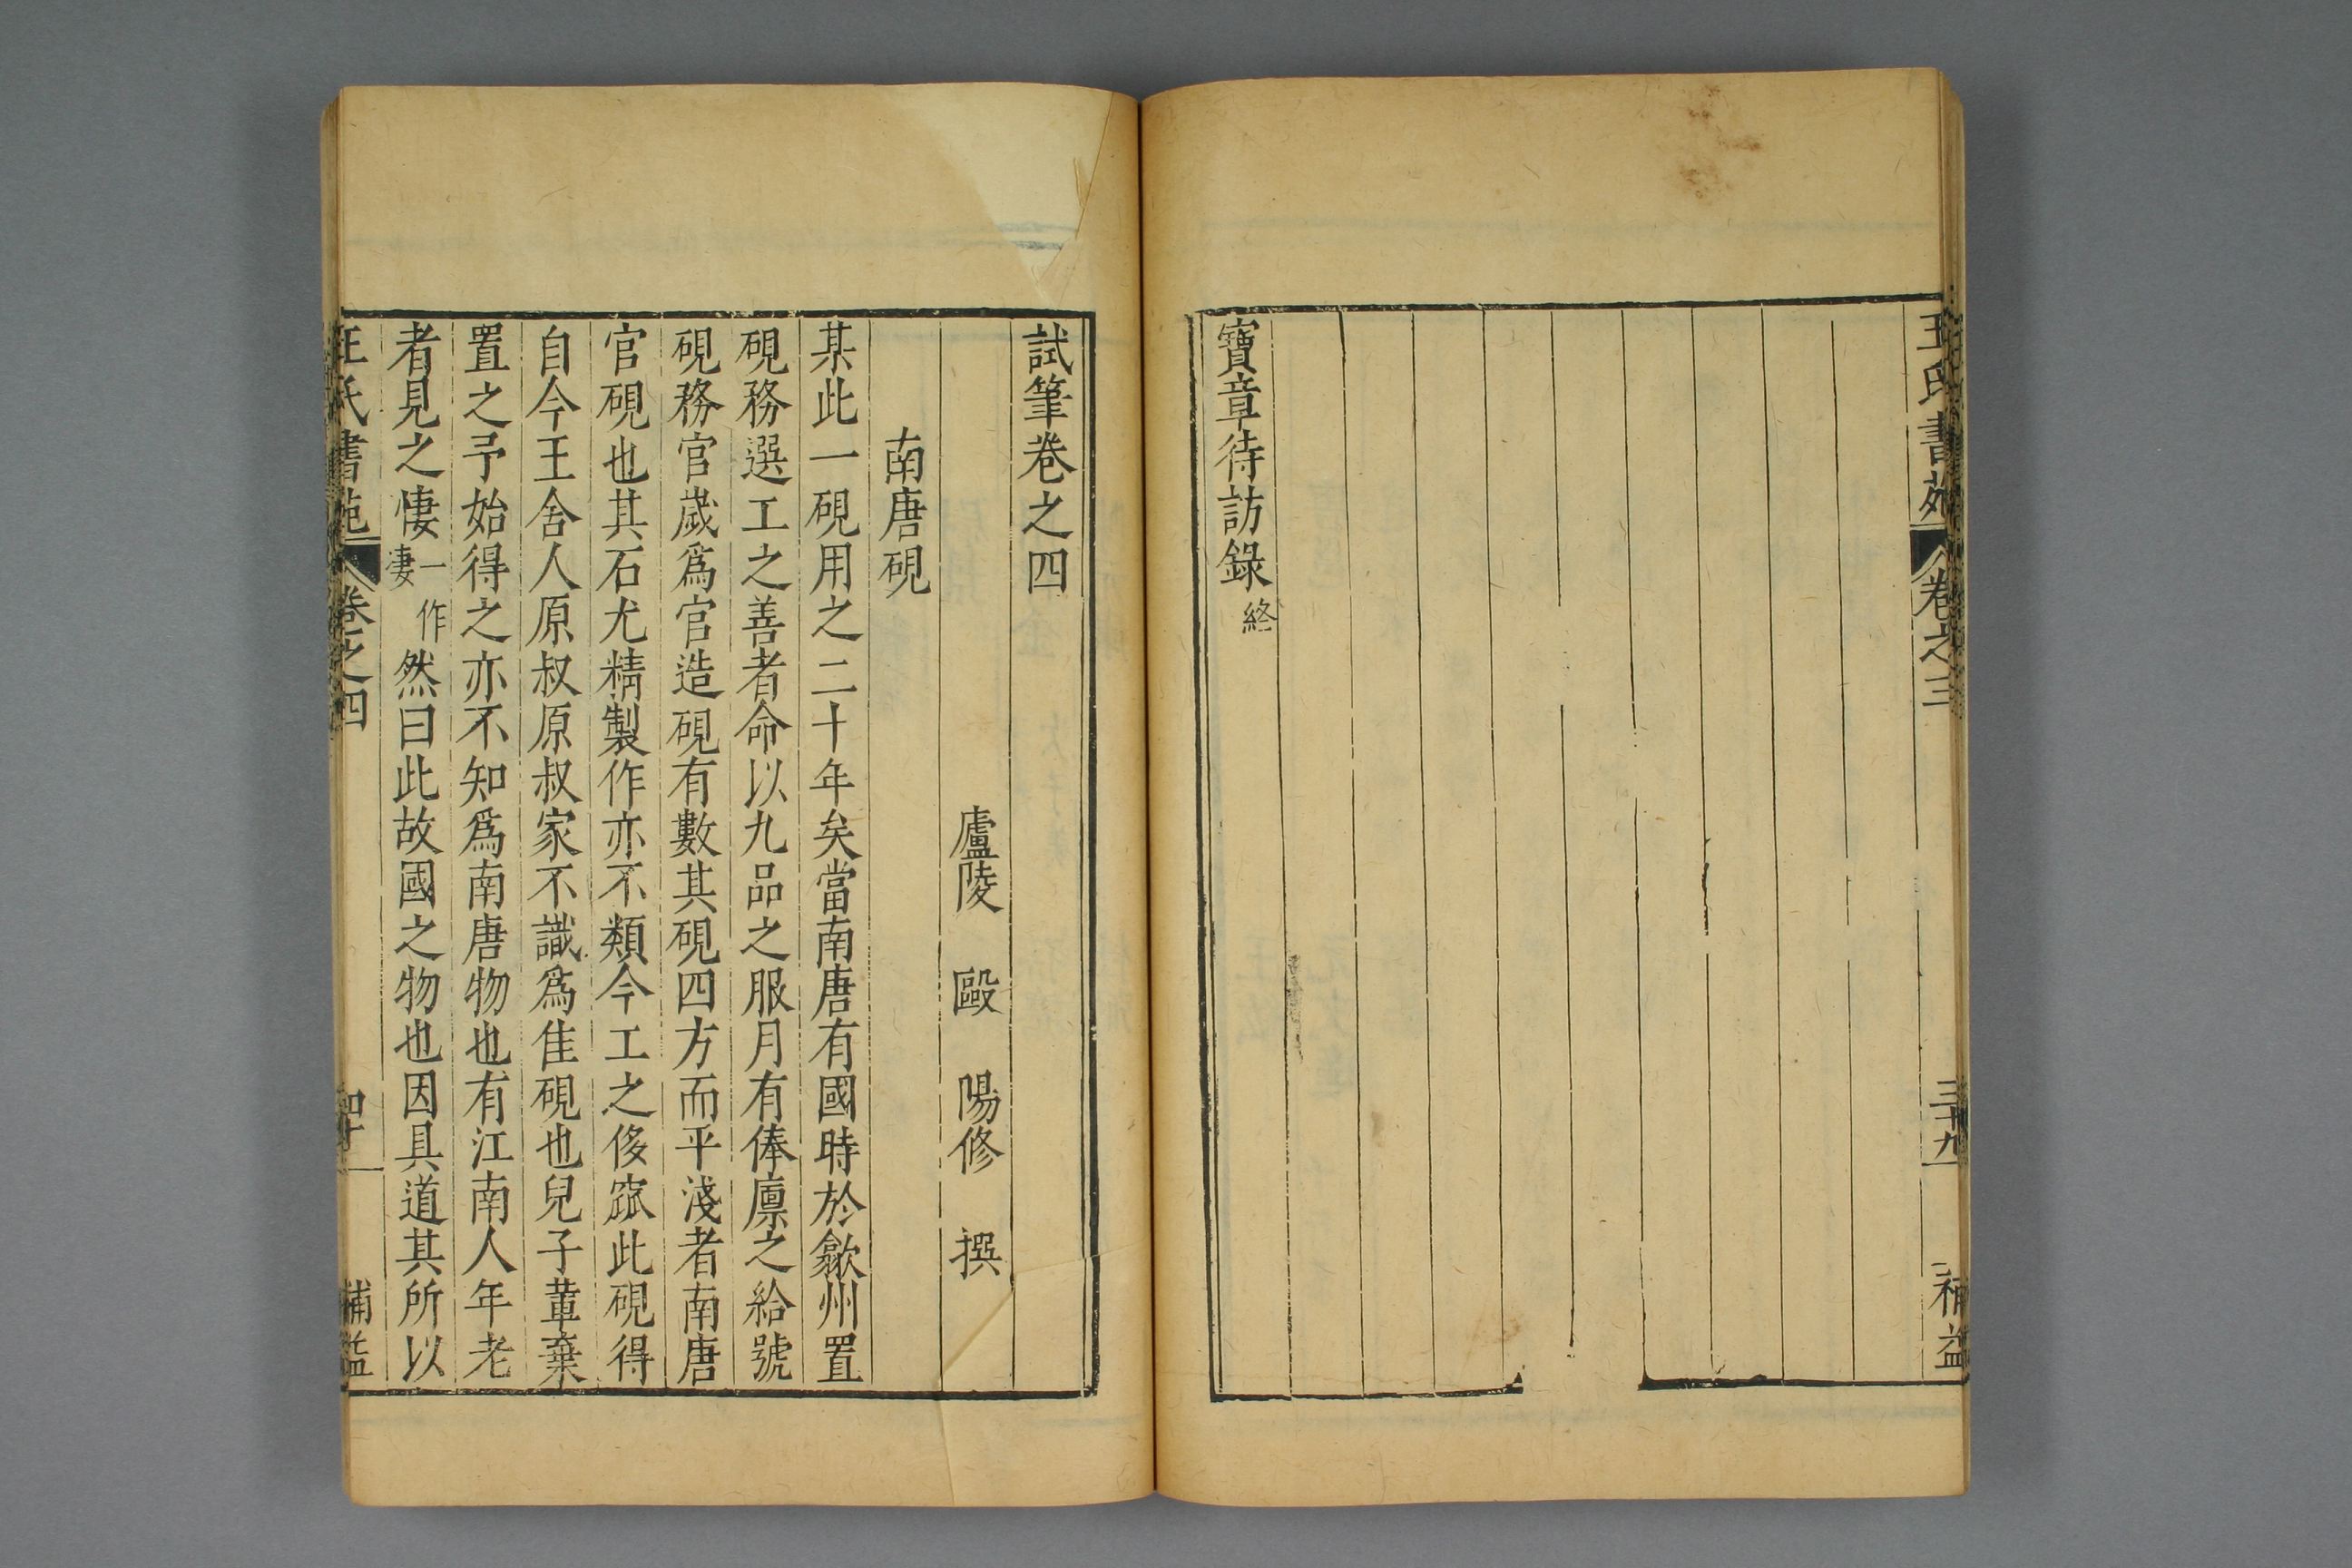 王氏書苑 卷之三 三十九 補益
寶章待訪錄終
試筆卷之四
廬陵 毆 陽修 撰
南唐硯
某此一硯用之二十年矣當南唐有國時於歙州置
硯務選工之善者命以九品之服月有俸廪之給號
硯務官歲爲官造硯有數其硯四方而平淺者南唐
官硯也其石尤精製作亦不類今工之侈窳此硯得
自今王舍人原叔原叔家不識爲佳硯也兒子軰棄
置之予始得之亦不知爲南唐物也有江南人年老
者見之悽一作凄然曰此故國之物也因具道其所以
王氏書苑 卷之四 四十 補益